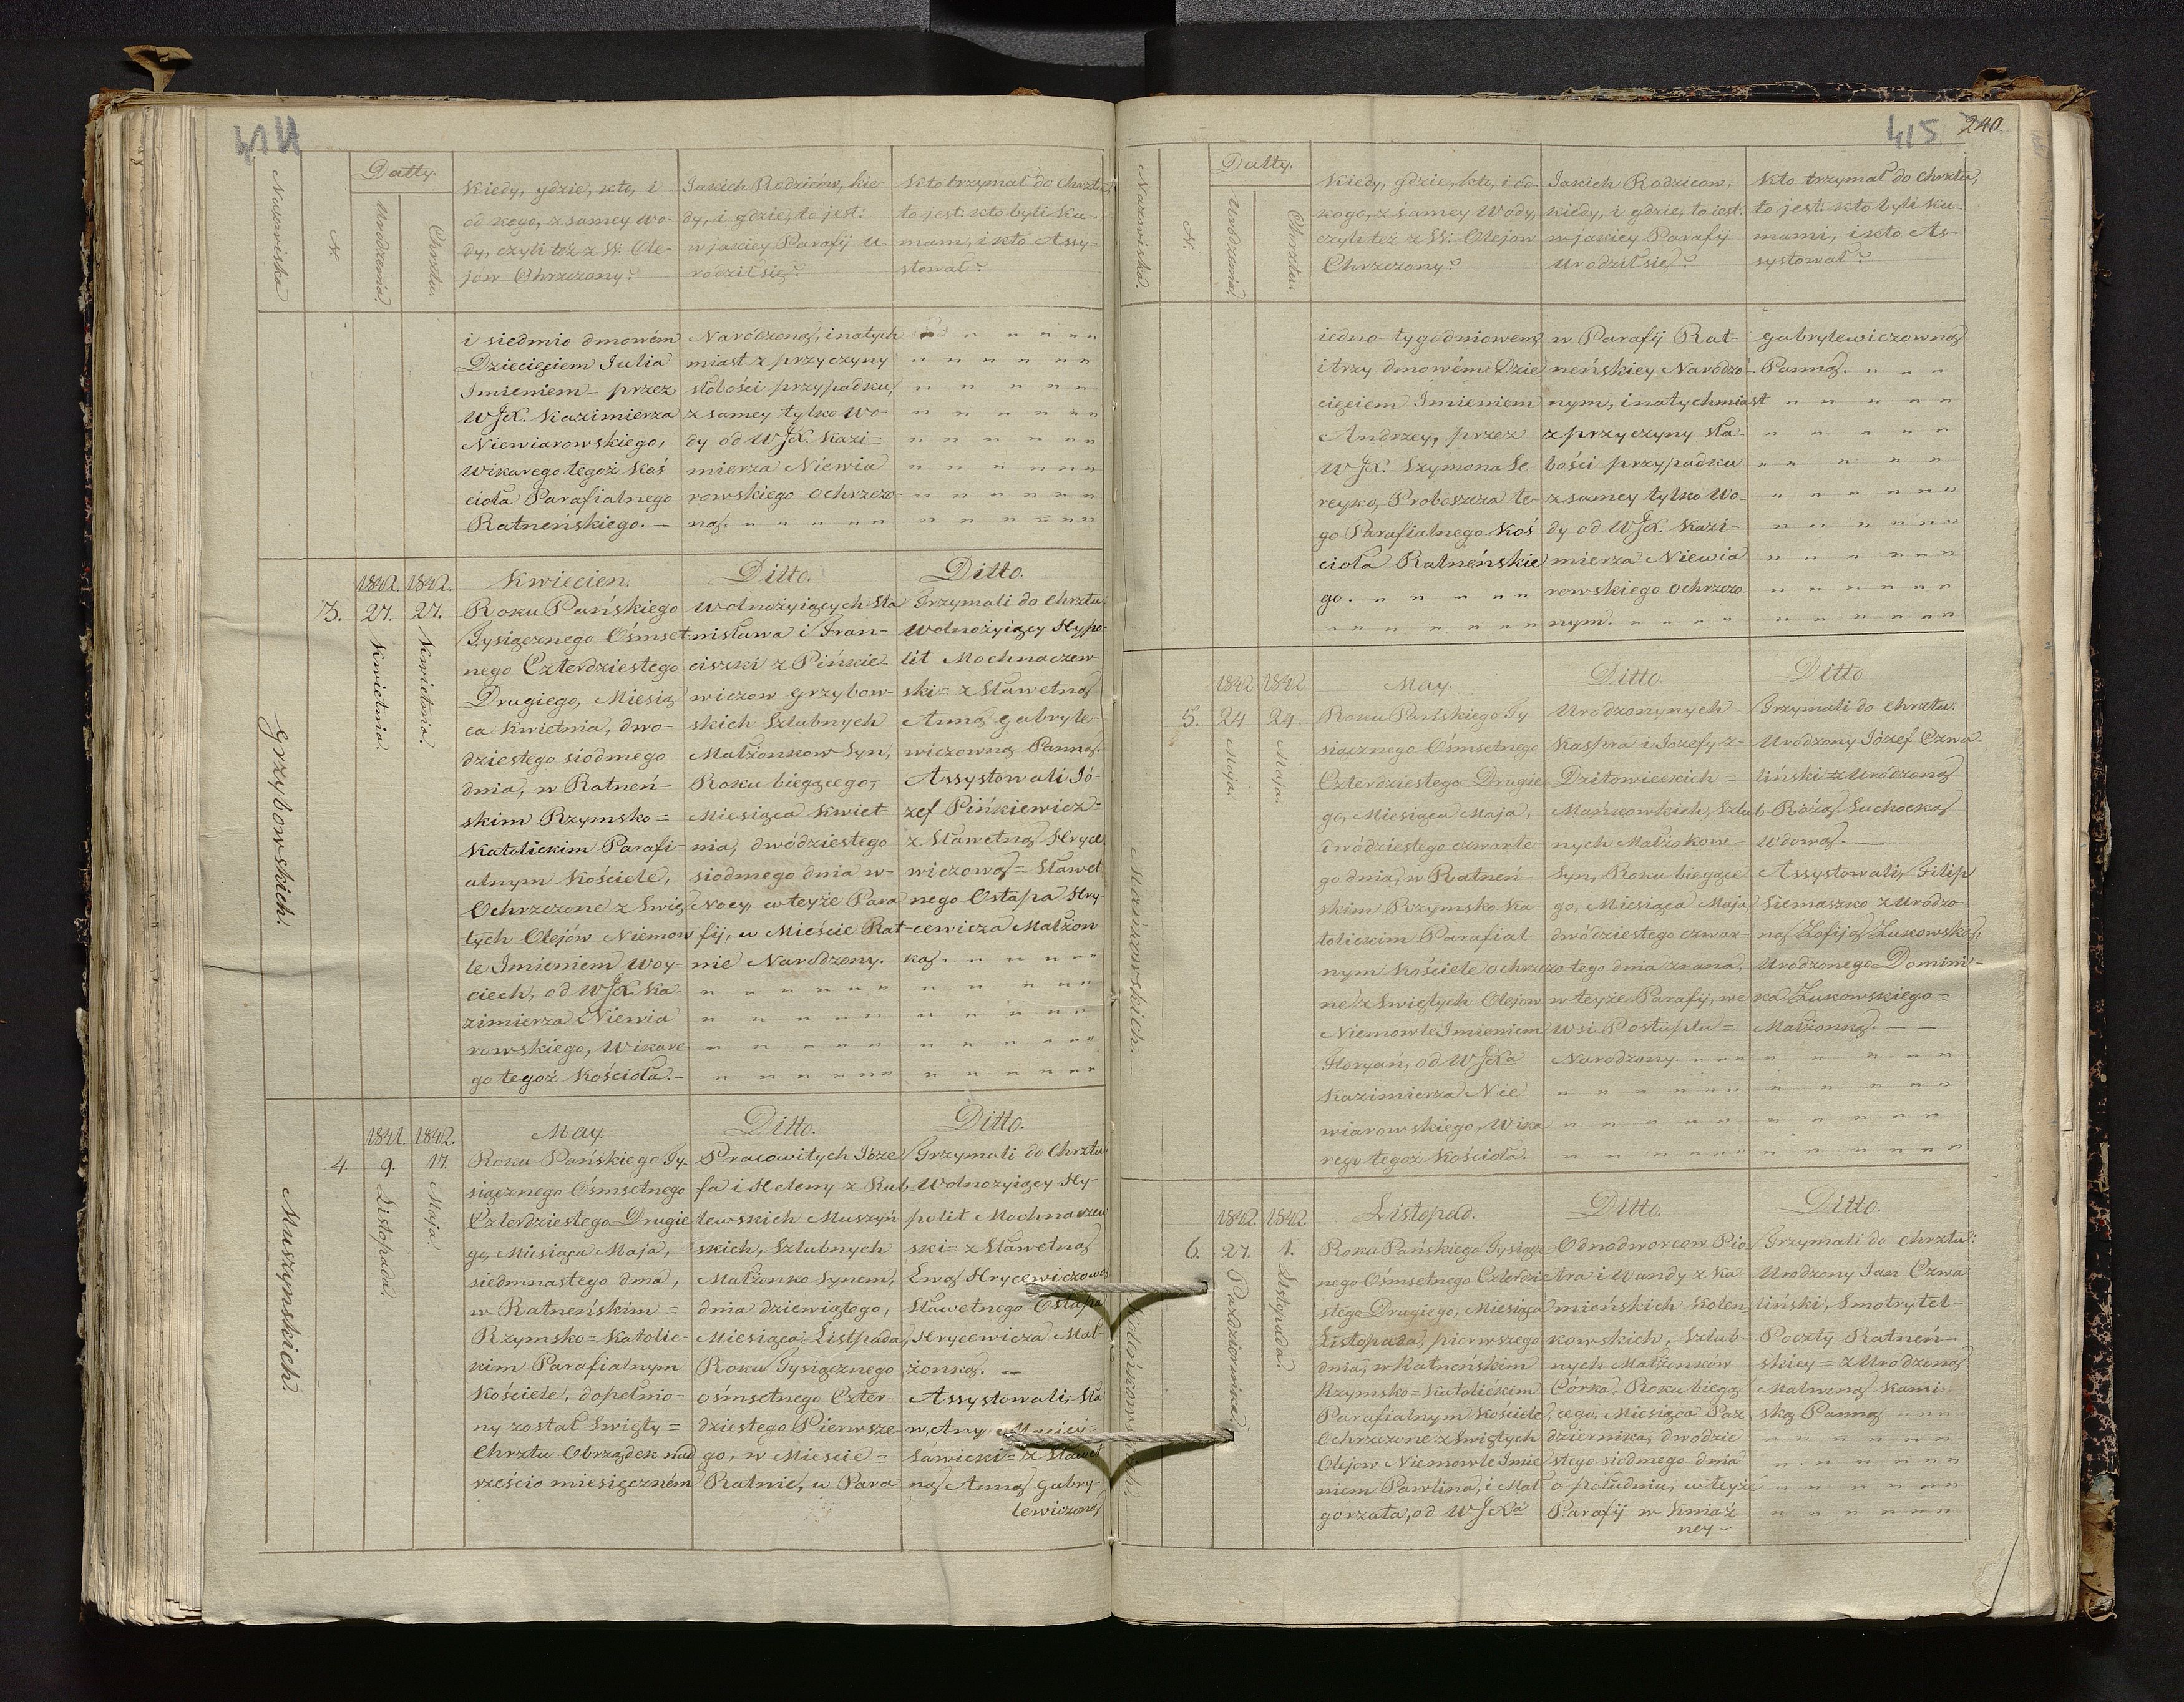 414
Nazwiska
N.
Datty.
Urodzenia.
Chrztu.
Kiedy, gdzie, kto, i
od kogo, z samey Wo-
dy, czyli też z SS. Ole-
jów Chrzczony?
Jakich Rodziców, kie
dy, i gdzie, to jest:
w jakiey Parafij U-
rodził się?
Kto trzymał do Chrztu,
to jest: kto byli Ku-
mami, i kto Assy-
stował?
i siedmio dniowém
Dziecięciem Julia
Imieniem – przez
WJX. Kazimierza
Niewiarowskiego,
Wikarego tegoż Koś
cioła Parafialnego
Ratneńskiego. –
Narodzoną, i natych
miast z przyczyny
słobości przypadku,
z samey tylko Wo-
dy od WJX. Kazi=
mierza Niewia
rowskiego ochrzczo-
ną. " " " " "
Grzybowskich.
3.
1842.
27.
Kwietnia.
1842.
27.
Kwietnia.
Kwiecien.
Roku Pańskiego
Tysiącznego Ośmset
nego Czterdziestego
Drugiego, Miesią
ca Kwietnia, dwo-
dziestego siodmego
dnia, w Ratneń-
skim Rzymsko=
Katolickim Parafi-
alnym Kościele,
Ochrzczone z Swię
tych Olejów Niemow
le Imieniem Woy-
ciech, od WJX. Ka-
zimierza Niewia
rowskiego, Wikare-
go tegoż Kościoła.–
Ditto.
Wolnożyiących Sta
nisława i Fran-
ciszki z Pińkie-
wiczow Grzybow-
skich Szlubnych
Małżonkow Syn,
Roku bieżącego,
Miesiąca Kwiet
nia, dwódziestego
siodmego dnia w-
Nocy, w teyże Para
fij, w Mieście Rat-
nie Narodzony.
Ditto.
Trzymali do Chrztu:
Wolnożyiący Hypo-
lit Mochnaczew-
ski= z Sławetną
Anną Gabryle-
wiczowną Panną.
Assystowali Jó-
zef Pińkiewicz=
z Sławetną Hryce
wiczową= Sławet
nego Ostapa Hry-
cewicza Małżon
ką. " " " " "
Muszynskich.
4.
1841.
9.
Listopada.
1842.
17.
Maja.
May.
Roku Pańskiego Ty-
siącznego Ośmsetnego
Czterdziestego Drugie
go, Miesiąca Maja,
siedmnastego dnia,
w Ratneńskim =
Rzymsko=Katolic-
kim Parafialnym
Kościele, dopełnio-
ny został Swięty =
Chrztu Obrządek nad
sześcio miesięczném
Ditto.
Pracowitych Józe
fa i Heleny z Rub
lewskich Muszyń
skich, Szlubnych
Małżonko Synem,
dnia dziewiątego,
Miesiąca Listpada,
Roku Tysiącznego
ośmsetnego Czter-
dziestego Pierwsze-
go, w Miescie =
Ratnie, w Para
Ditto.
Trzymali do Chrztu
Wolnożyiący Hy-
polit Mochnaczew
ski= z Sławetną
Ewą Hrycewiczową
Sławetnego Ostapa
Hrycewicza Mał-
żonką. —
Assystowali, Sła
wetny
Sawicki= z Sławet
ną Anną Gabry-
lewiczoną
415 240.
Nazwiska.
N.
Datty.
Urodzenia
Chrztu.
Kiedy, gdzie, kto, i od-
kogo, z samey Wody,
czyli też z SS. Olejow
Chrzczony?
Jakich Rodzicow,
kiedy, i gdzie, to iest:
w jakiey Parafij
Urodził się?
Kto trzymał do Chrztu,
to jest: kto byli Ku-
mami, i kto As-
systował?
iedno tygodniowem
i trzy dniowém Dzie
cięciem Imieniem
Andrzey, przez
WJX. Szymona Se-
reyko, Proboszcza te-
go Parafialnego Koś
cioła Ratneńskie
go. " " " " "
w Parafij Rat-
neńskiey Narodzo-
nym, i natychmiast
z przyczyny sła-
bości przypadku
z samey tylko Wo-
dy od WJX. Kazi-
mierza Niewia
rowskiego ochrzczo
nym. " " " "
gabrylewiczowną
Panną. " " "
Mańkowskich.–
5.
1842
24
Maja.
1842
24.
Maja.
May.
Roku Pańskiego Ty
siącznego Ośmsetnego
Czterdziestego Drugie
go, Miesiąca Maja,
dwódziestego czwarte
go dnia, w Ratneń-
skim Rzymsko Ka
tolickim Parafial-
nym Kościele ochrzczo
ne z Swiętych Olejow
Niemowle Imieniem
Floryań, od WJXa
Kazimierza Nie
wiarowskiego, Wika
rego tegoż Kościoła.
Ditto.
Urodzonynych
Kaspra i Jozefy z-
Dziłowieckich =
Mańkowkich, Szlub
nych Małżokow-
Syn, Roku bieżące
go, Miesiąca Maja,
dwódziestego czwar-
tego dnia zrana,
w teyże Parafij, we
Wsi Postuplu=
Narodzony. " " "
Ditto
Trzymali do chrztu:
Urodzony Józef Czwa-
liński z Urodzoną
Różą Suchocką
Wdową. —
Assystowali, Filip
Siemaszko z Urodzo
ną Zofiją Zukowską,
Urodzonego Domini-
ka Zukowskiego =
Małżonką. — —
Kolenkowskich.
6.
1842.
27.
Pazdziernica
1842
1.
Listopada.
Listopad.
Roku Pańskiego Tysiącz
nego Ośmsetnego Czterdzie
stego Drugiego, Miesiąca
Listopada, pierwszego
dnia, w Ratneńskim
Rzymsko=Katolickim
Parafialnym Kościele,
Ochrzczone z Swiętych
Olejow Niemowle Imie
niem Pawlina, i Mał
gorzata, od W. JXa
Ditto.
Odnodworcow Pio
tra i Wandy z Ka
mieńskich Kolen-
kowskich, Szlub-
nych Małżonków
Córka, Roku bieżą
cego, Miesiąca Paz
dziernika, dwodzie
stego siodmego dnia
o południu, w teyże
Parafij w Kniaż
ney-
Ditto.
Trzymali do chrztu:
Urodzony Jan Czwa
liński, Smotrytel-
Poczty Ratneń-
skiey= z Urodzoną
Malwiną Kami
ską Panną " " "